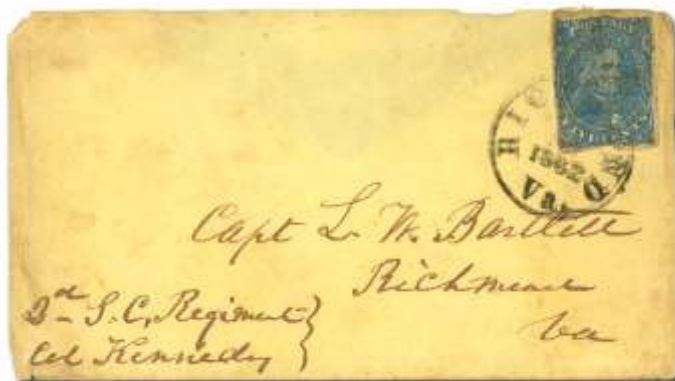 RICHMOND
1862
Va.
Capt L. W. Bartlett
Richmond
Va
2d S. C. Regiment
Col Kennedy